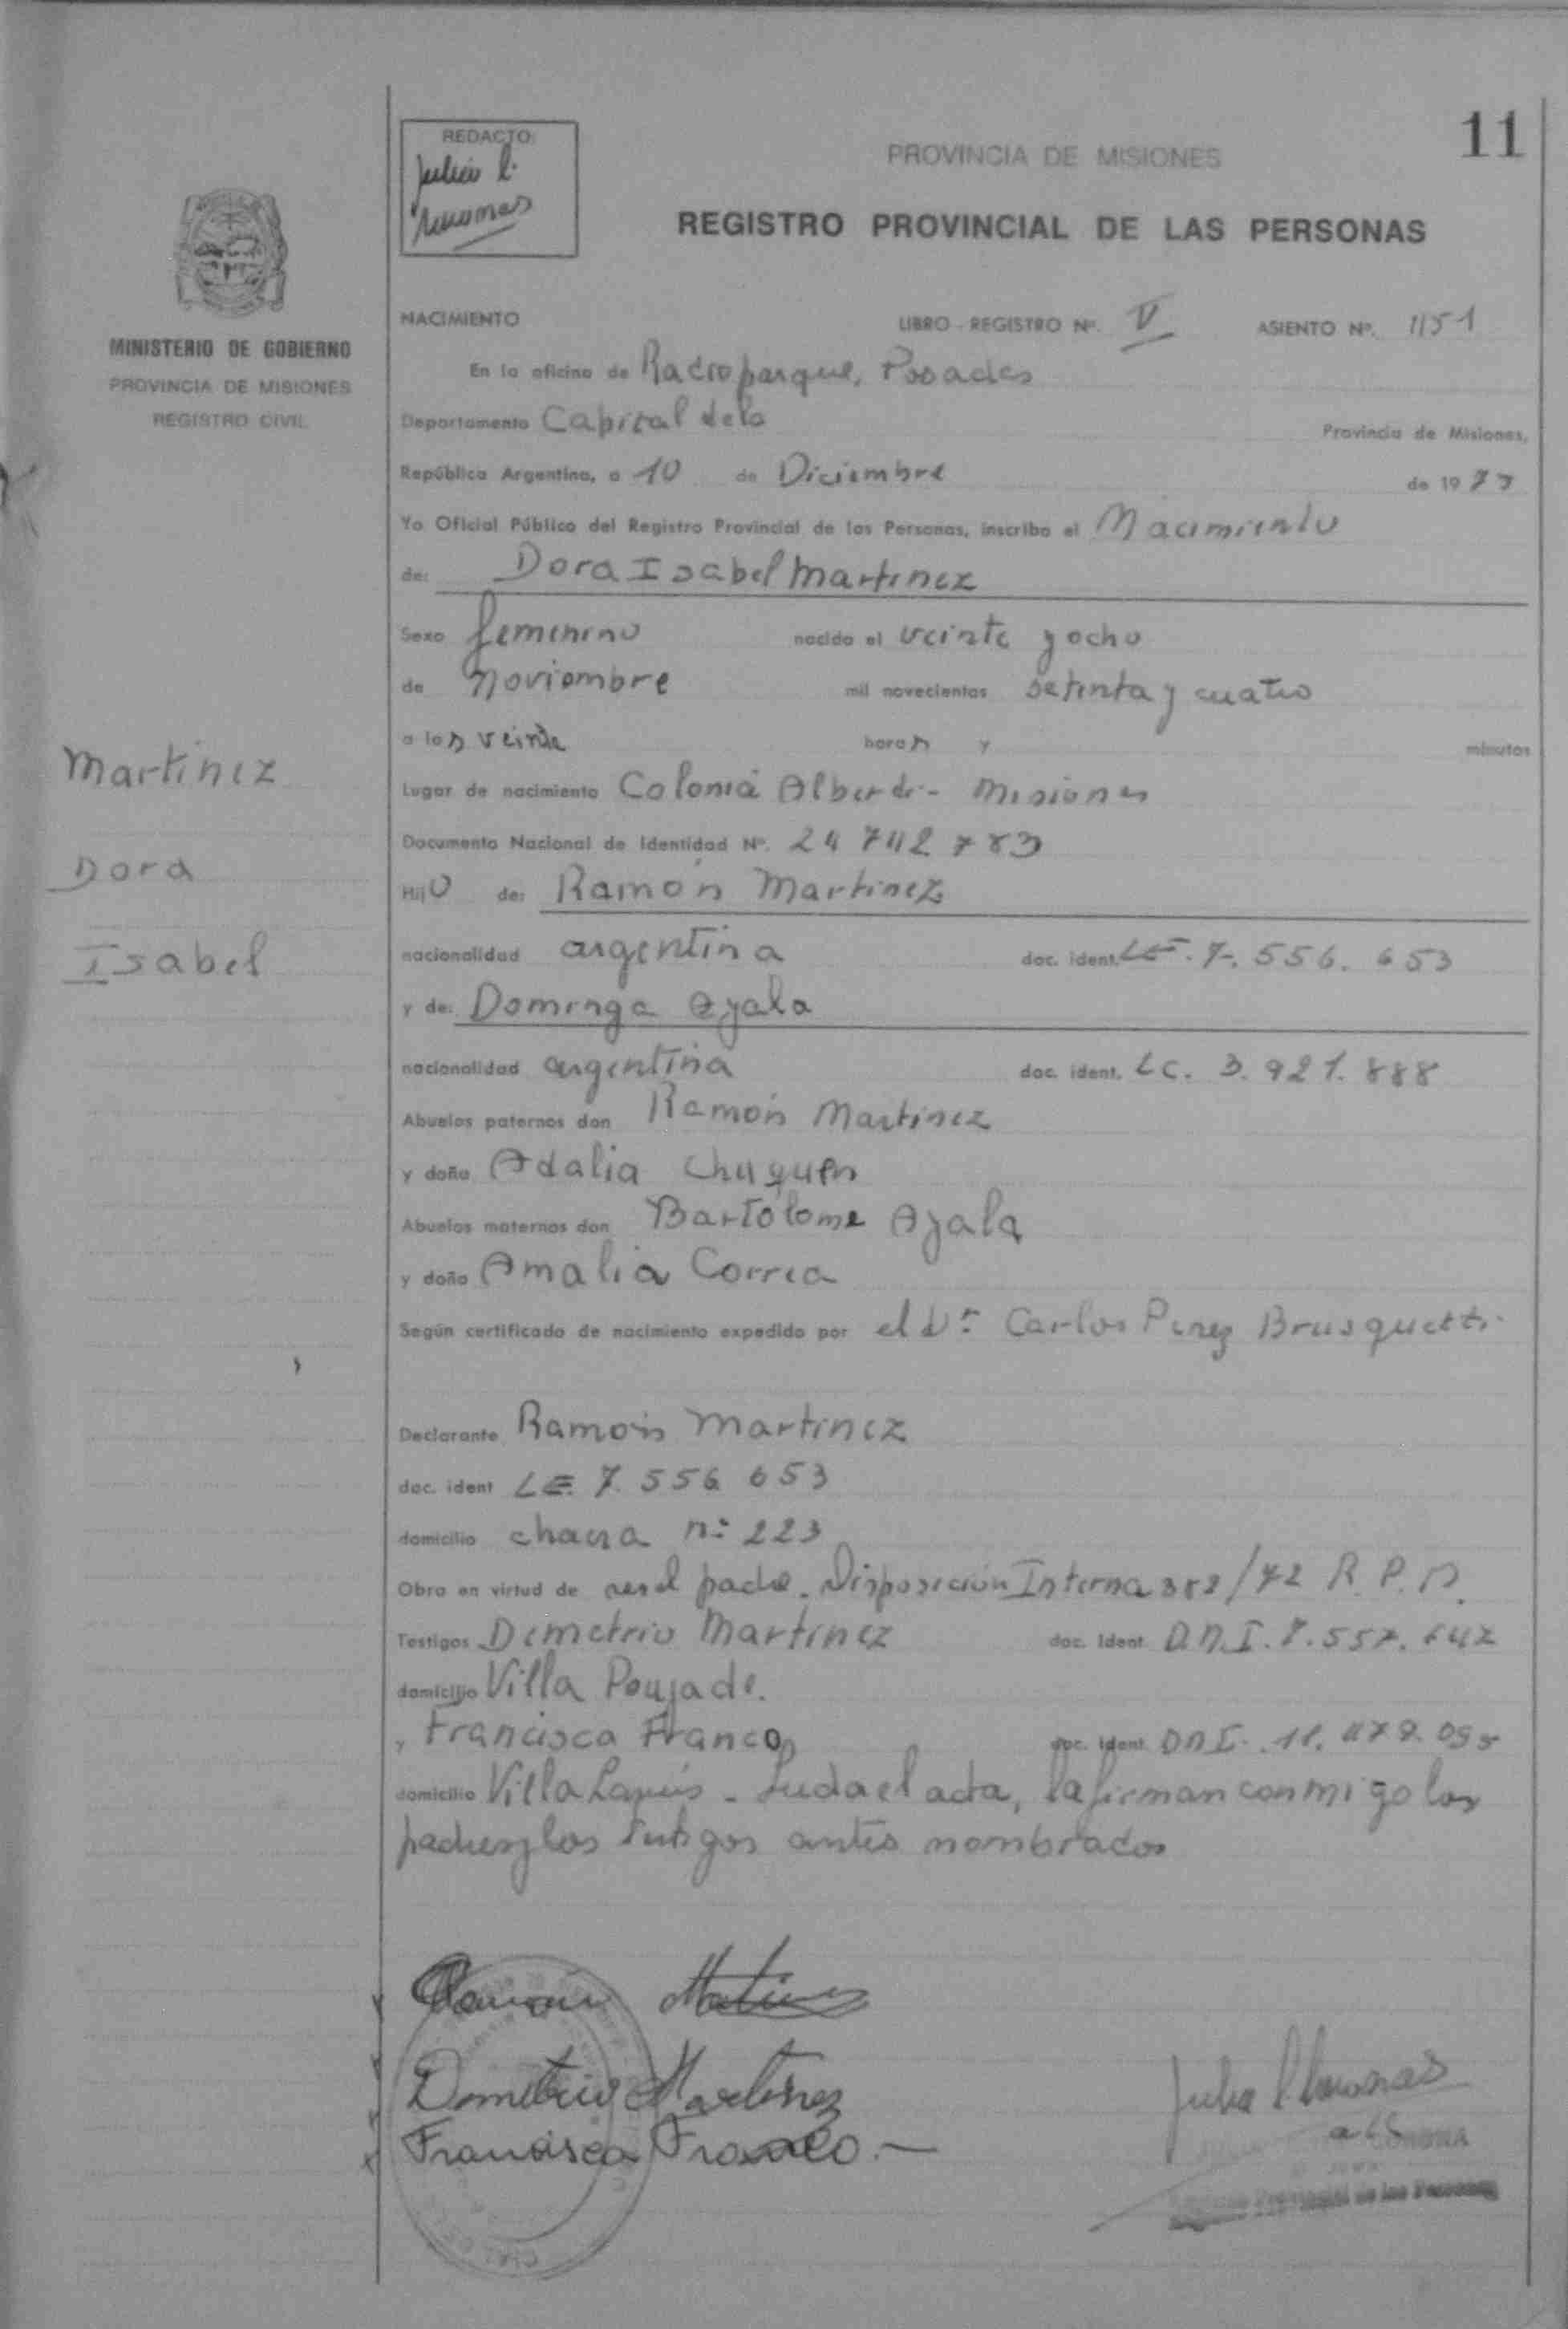 11
REDACTO:
Julia
PROVINCIA DE MISIONES
REGISTRO PROVINCIAL DE LAS PERSONAS
MINISTERIO DE GOBIERNO
PROVINCIA DE MISIONES
REGISTRO CIVIL
NACIMIENTO LIBRO - REGISTRO Nº. V ASIENTO Nº. 1151
En la oficina de Racroparque, Posadas
Departamento Capital dela Provincia de Misiones,
República Argentina, a 10 de Diciembre de 19
Yo Oficial Público del Registro Provincial de las Personas, inscribo el Nacimiento
de: Dora Isabel Martinez
Sexo femenino nacido el veinte y ocho
de noviembre mil novecientos setenta y cuatro
a las veinte horas y minutos
Lugar de nacimiento Colonia Alberdi - Misiones
Documento Nacional de Identidad Nº. 24 742 783
Hijo de: Ramón Martinez
nacionalidad argentina doc. ident. LE. 7. 556. 653
y de: Dominga Ayala
nacionalidad argentina doc. ident. LC. 3. 921. 888
Abuelos paternos don Ramón Martinez
y doña Adalia
Abuelos maternos don Bartólome Ayala
y doña Amalia Correa
Según certificado de nacimiento expedido por el Dr. Carlos Perez Brusquetti
Declarante Ramón Martinez
doc. ident LE. 7. 556 653
domicilio chacra nº 223
Obra en virtud de ser el padre. Disposición Interna 382/72 R. P. P.
Testigos Demetrio Martinez doc. Ident. D.N.I. 7.557.642
domicilio Villa Poujade.
y Francisca Franco doc. ident. DNI.
domicilio Villa Lanús - Leida el acta, la firman conmigo los
padres y los testigos antes nombrados
Martinez
Dora
Isabel
Ramon Martinez
Demetrio Martinez
Francisca Franco.-
Julia
Provincial de las Personas